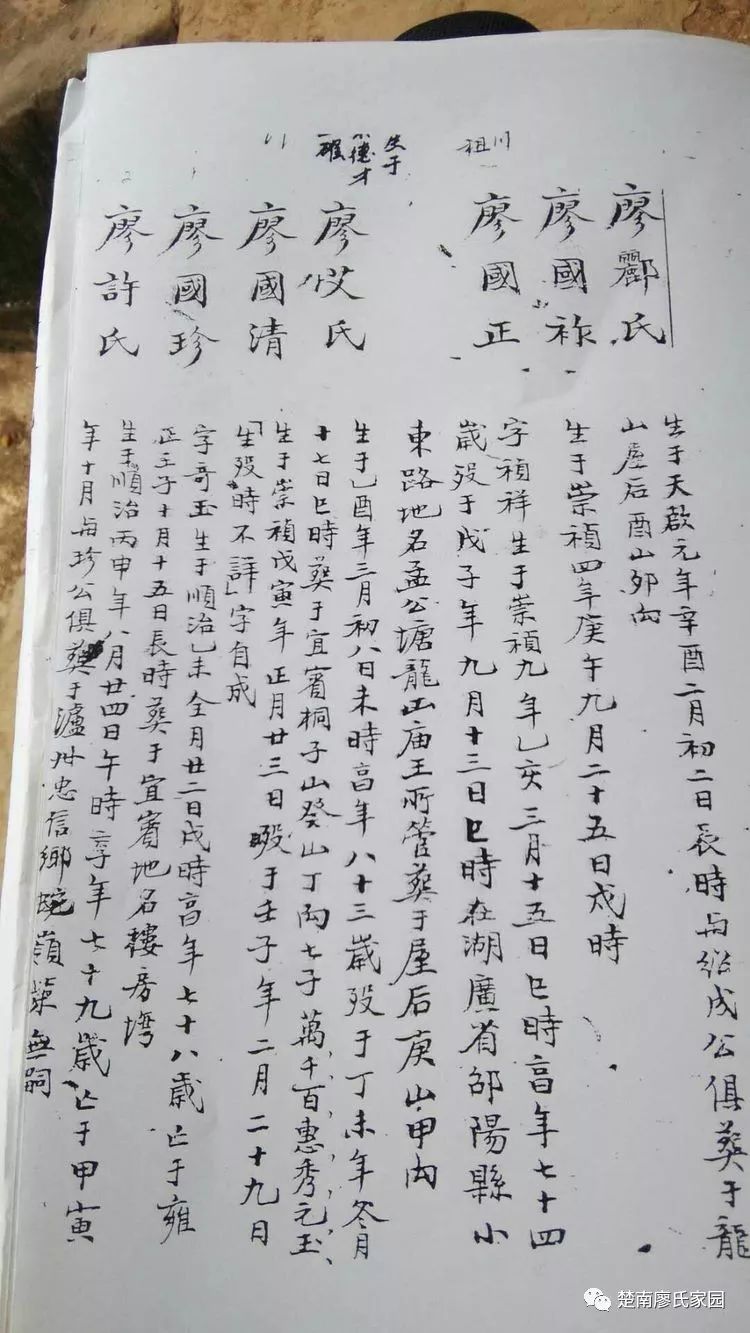 廖酈氏
生于天啟元年辛酉二月初二日辰時与紹成公俱葬于龍
山屋后酉山卯向
廖國祚
生于崇禎四年庚午九月二十五日戌時
祖川
廖國正
字禎祥生于崇禎九年乙亥三月十五日巳時高年七十四
歲歿于戊子年九月十三日巳時在湖廣省邵陽縣小
東路地名孟公塘龍山庙王所管葬于屋后庚山甲向
生于
德才
廖艾氏
生于乙酉年三月初八日未時高年八十三歲歿于丁未年冬月
十七日巳時葬于宜賓桐子山癸山丁向七子萬千百惠秀元玉
廖國清
生于崇禎戊寅年正月廿三日歿于壬子年二月二十九日
「生歿時不詳」字自成
廖國珍
字奇玉生于順治乙未全月廿二日戌時高年七十八歲亡于雍
正壬子十月十五日長時葬于宜賓地名樓房塆
廖許氏
生于順治丙申年八月廿四日午時享年七十九歲亡于甲寅
年十月与珍公俱葬于瀘州忠信鄉 嶺 無嗣
楚南廖氏家园